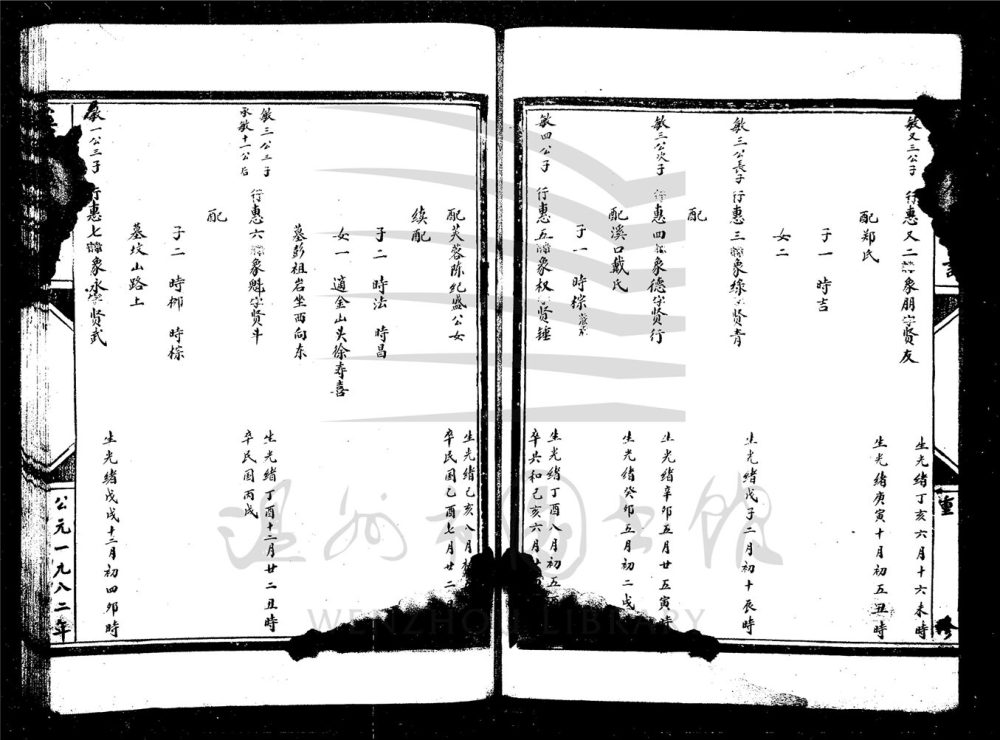 敏又三公子 行惠又二 象朋字贤友 生光绪丁亥六月十六未時
配郑氏 生光绪庚寅十月初五丑時
子一 時吉
女二
敏三公長子 行惠三 象缘 贤青 生光绪戊子二月初十辰時
配
敏三公次子 行惠四 象德字贤行 生光绪辛卯五月廿五寅時
配溪口戴氏 生光绪癸卯五月初二戌
子一 時棕
敏四公子 行惠五 象权 贤锤 生光绪丁酉八月初五
卒共和己亥六月廿
重
修
配芙蓉陈纪盛公女 生光绪己亥八月
卒民国己酉七月廿二
续配
子二 時法 時昌
女一 適金山头徐寿喜
墓彭祖岩坐西向东
敏三公三子
承敏十一公后 行惠六 象魁字贤斗 生光绪丁酉十二月廿二丑時
卒民国丙戌
配
子二 時柳 時棕
墓坟山路上
敏一公三子 行惠七 象永 贤武 生光绪戊戌十二月初四卯時
公元一九八二年
温州市图书馆
WENZHOU LIBRARY